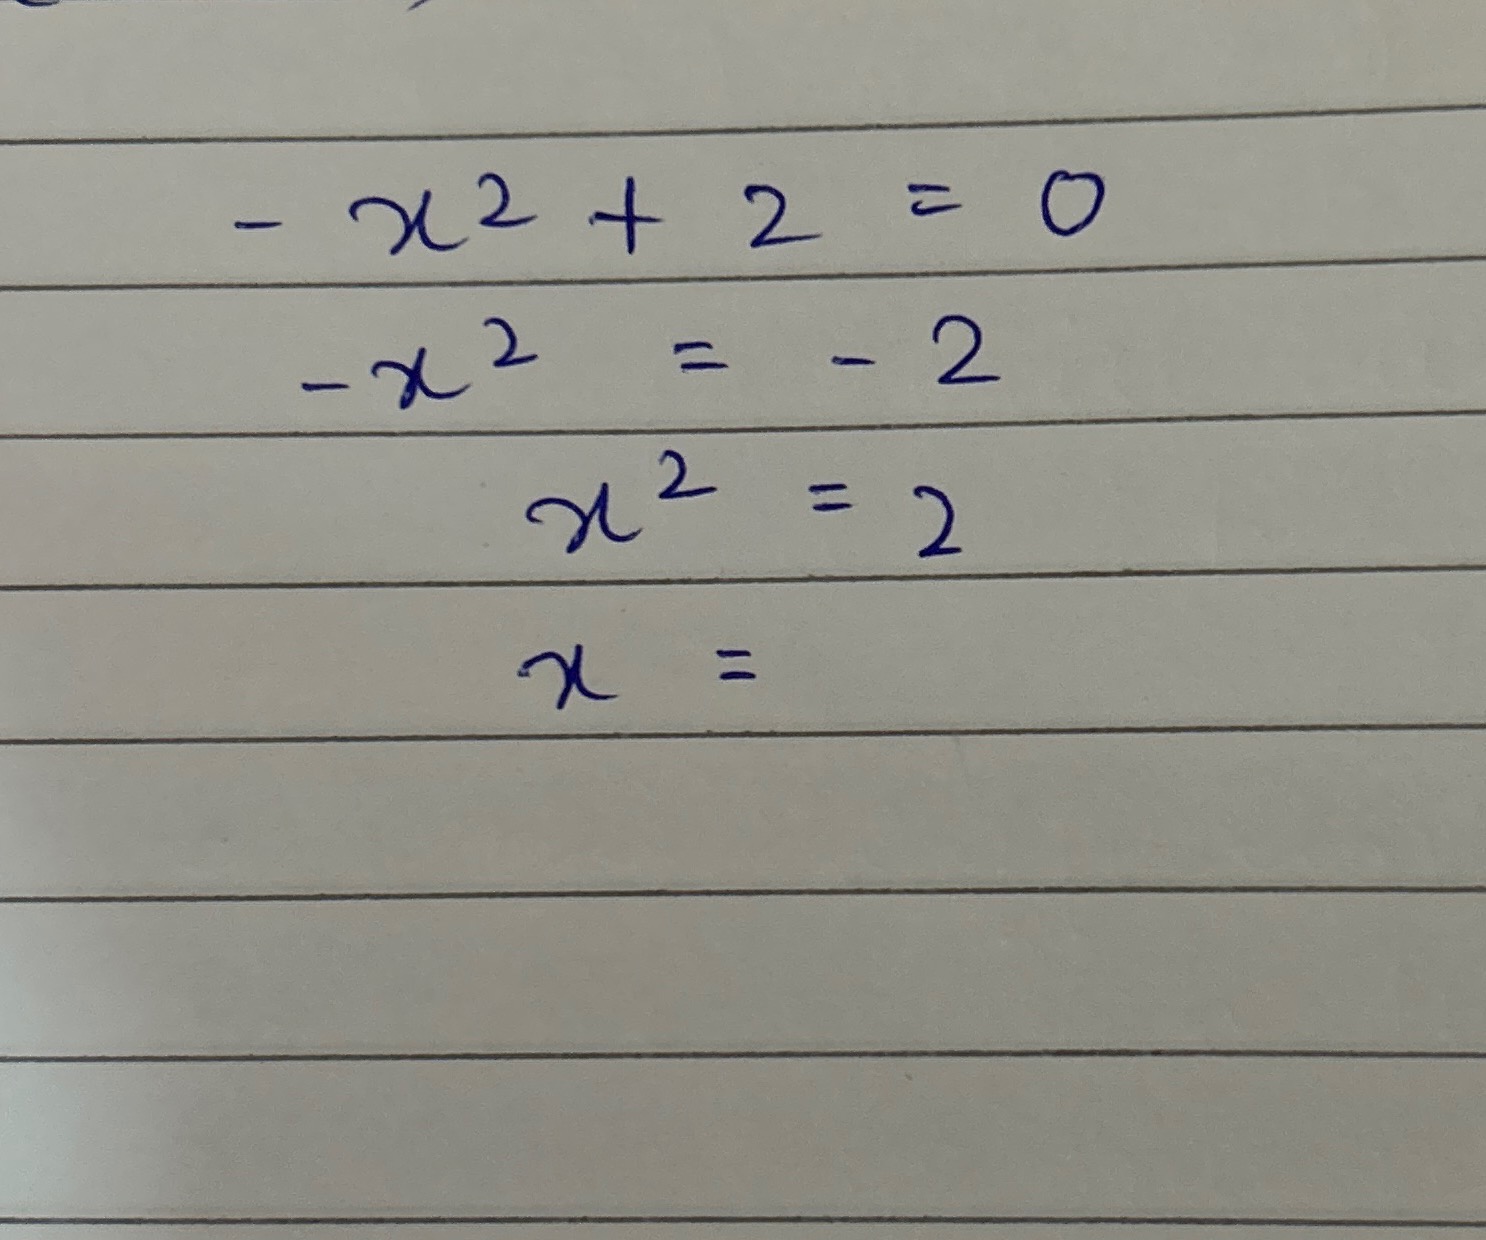 - x² + 2 = 0
-x² = - 2
x² = 2
x =